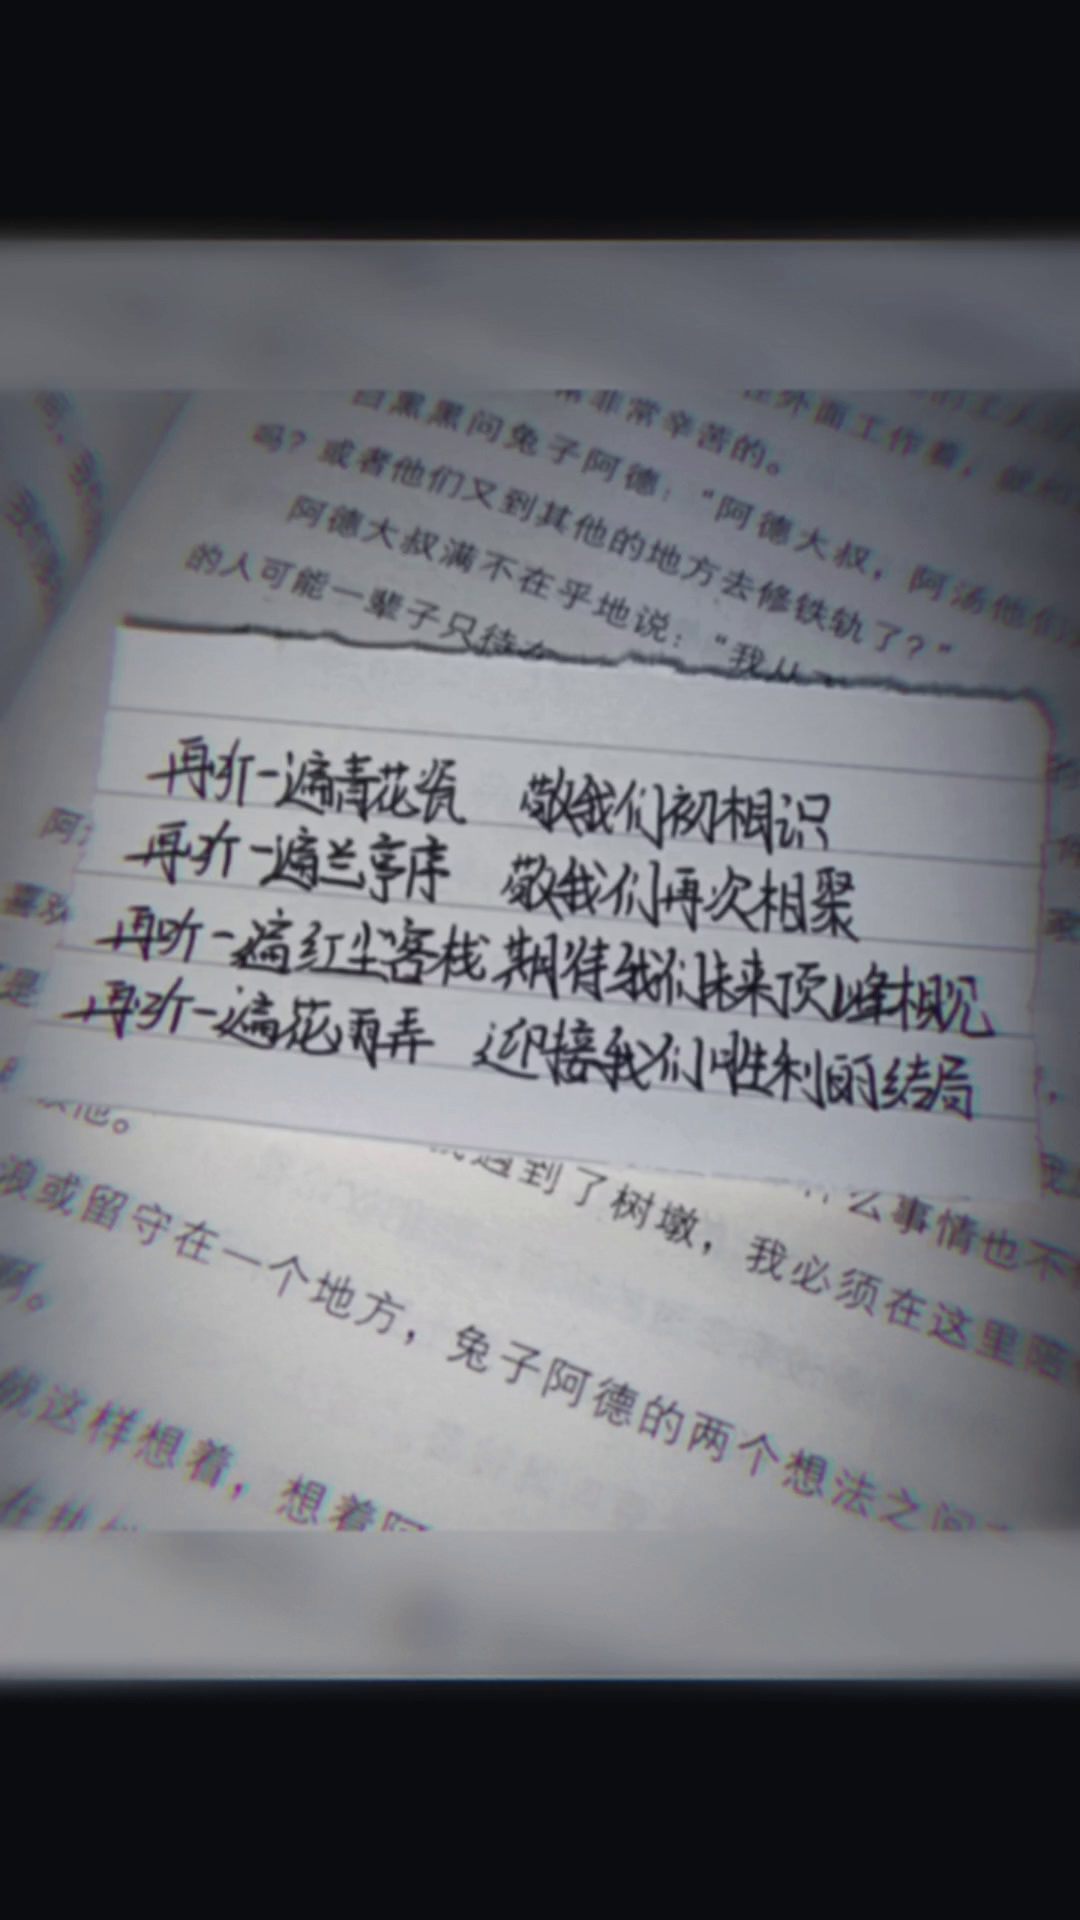 常非常辛苦的。
在外面工作着，
白黑黑问兔子阿德："阿德大叔，阿汤他们
吗？或者他们又到其他的地方去修铁轨了？"
阿德大叔满不在乎地说："我从
的人可能一辈子只待在
再听一遍青花瓷 敬我们初相识
再听一遍兰亭序 敬我们再次相聚
再听一遍红尘客栈 期待我们未来顶峰相见
再听一遍花雨弄 迎接我们胜利的结局
他。
遇到了树墩，我必须在这里陪
什么事情也不
浪或留守在一个地方，兔子阿德的两个想法之间
啊。
就这样想着，想着阿